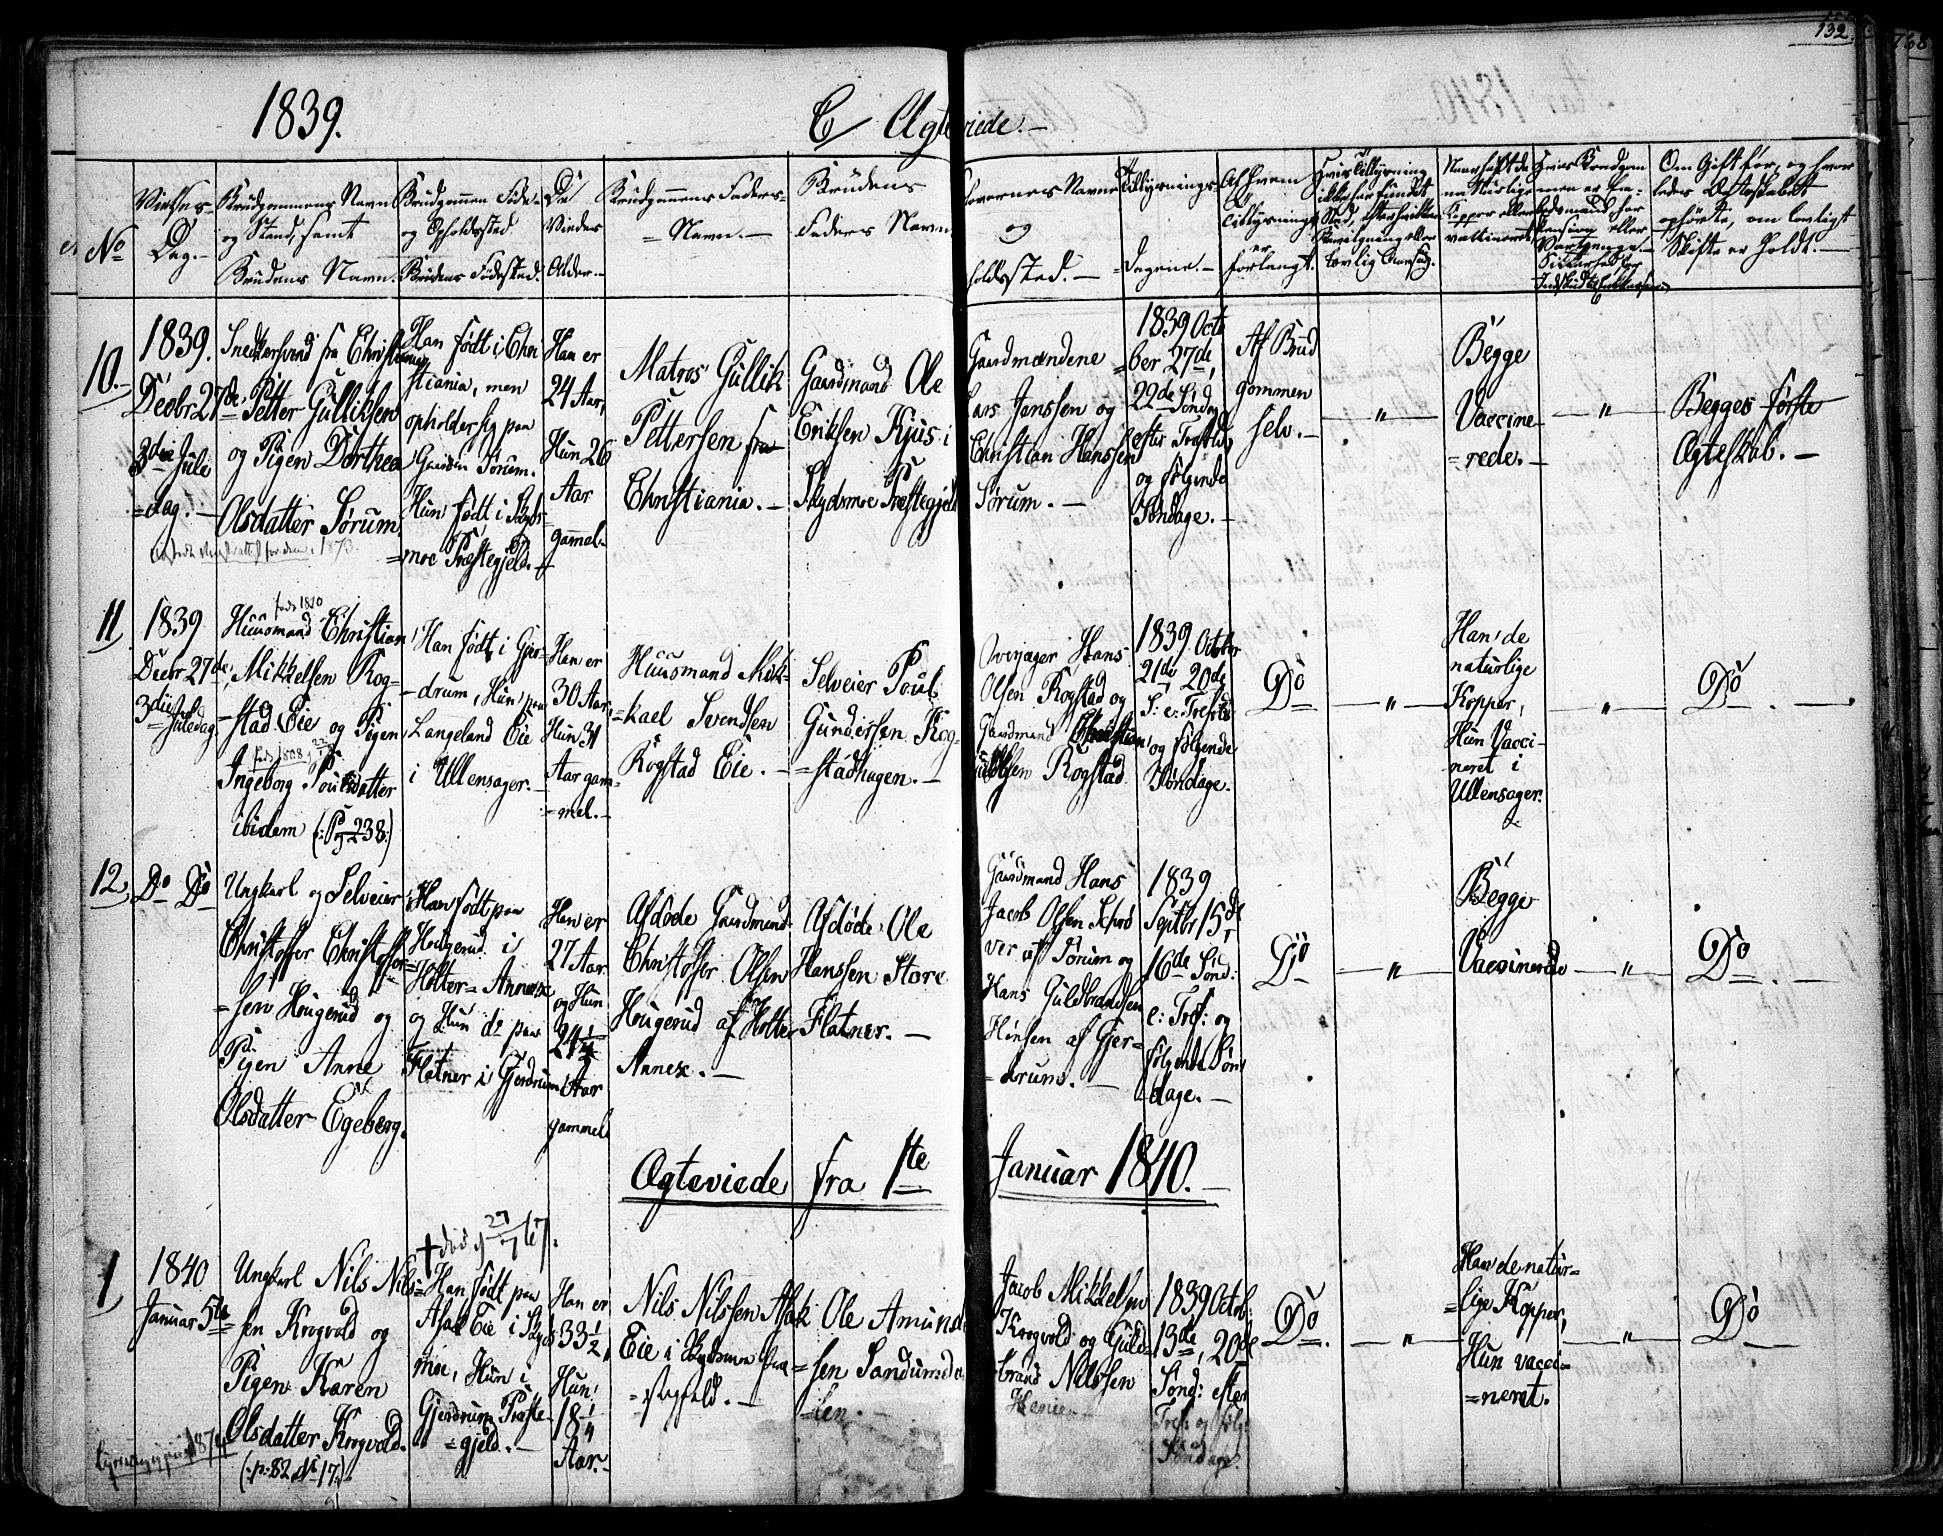 132.
1839.
C/ Ægteviede.
No
Vielses-
Dag.
Brudgommens Navn
og Stand, samt
Brudens Navn.
Brudgommens Føde-
og Opholdssted
Brudens Fødested.
De
Viedes
Alder.
Brudgommens Faders-
= Navn. —
Brudens
Faders Navn
Forlovernes Navne
og
holdssted. —
Tillysnings-
= Dagene. —
Af Hvem
Tillysningen
er
forlangt.
Om Gift før, og hvor
ledes Ægteskabet
ophørte, om lovligt
Skifte er holdt. —
10. —
1839.
Decbr 27de
3die Jule
=dag. —
Snedkersvend fra Christiania
Petter Gulliksen
og Pigen Dorthea
Olsdatter Sørum.
1873.
Han født i Chri
stiania, men
opholder sig paa
Gaarden Sørum.
Hun født i Skyds
=moe Præstegjeld. —
Han er
24 Aar,
Hun 26
Aar
gammel. —
Matros Gullik
Pettersen fra
Christiania. —
Gaardmand Ole
Eriksen Kjus i
Skydsmoe Præstegjeld
Gaardmændene
Lars Jenssen og
Christian Hanssen
Sørum. —
1839 Octo
ber 27de,
22de Søndag
efter Trefold
og følgende
Søndage. —
Af Brud
gommen
selv. —
— " —
Begge
Vaccine
=rede. —
— " —
Begges første
Ægteskab. —
11,
1839
Decbr 27de,
3die
Juledag
født 1810
Huusmand Christian
Mikkelsen Rog-
stad Eie og Pigen
født 1808
Ingeborg Poulsdatter
ibidem (: Pag 238 :)
Han født i Gjer-
drum, Hun paa
Langeland Eie
i Ullensager. —
Han er
30 Aar,
Hun 31
Aar gam=
=mel. —
Huusmand Mik-
=kael Svendsen
Rogstad Eie. —
Selveier Poul
Gundersen Rog-
=stadhagen. —
Hans
Olsen Rogstad og
Gaardmand Christian
Rogstad
1839 October
21de 20de
S: e: Trefold
og følgende
Søndage.
Do
— " —
Han de
naturlige
Kopper,
Hun Vacci-
neret i
Ullensager.
"
Do. —
12,
Do Do
Ungkarl og Selveier
Christoffer Christoffer=
=sen Hougerud og
Pigen Anne
Olsdatter Egeberg.
Han født paa
Hougerud i
Holter= Annexe
og Hun do paa
Flatner i Gjerdrum
Han er
27 Aar
og Hun
24 1/4
Aar
gammel
Afdøde Gaardmand
Christoffer Olsen
Hougerud af Holter
Annex. —
Afdøde Ole
Hanssen Store
Flatner. —
Gaardmand Hans
Jacob Olsen
ver af Sørum og
Hans Guldbrandsen
af Gjer=
=drum. —
1839
Septbr 15de,
16de Sønd:
e: Tref: og
følgende Søn
dage. —
Do
— " —
Begge
Vaccinerede
— " —
Do. —
Ægteviede fra 1te Januar 1840. —
1,
1840
Januar 5te
1874
Ungkarl Nils Nils=
sen Krogvold og
Pigen Karen
Olsdatter Krogvold.
(: p: 82 No 17 :)
† død 27/7 67.
Han født paa
Asak Eie i Skyds
moe, Hun i
Gjerdrum Præste
=gjeld. —
Han er
33 1/2,
Hun
18 1/4
Aar. —
Nils Nilssen Asak
Eie i Skydsmoe Præ=
=stegjeld. —
Ole Amund
sen Sandumda
=len. —
Jacob Mikkelsen
Krogvold og Guld-
brand Nilssen
1839 Octob:
13de, 20de
Sønd: efter
Tref: og følg:
Søndage.
Do. —
— " —
Han de natur=
=lige Kopper,
Hun vacci=
=neret.
— " —
Do —